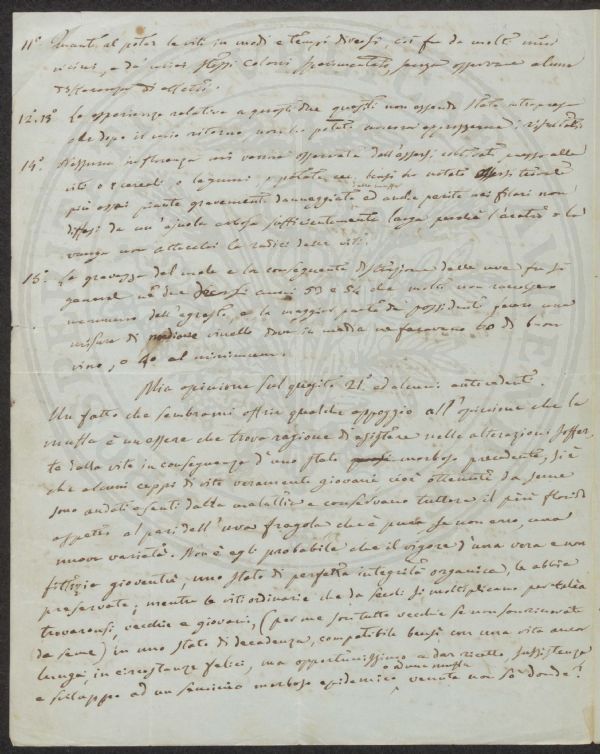 11° Quanto al potar le viti in modi e tempi diversi, ciò fu da molti miei
vicini, e da' miei stessi coloni sperimentato, senza osservare alcuna
differenza di effetti.
12°. 13° Le esperienze relative a questi due quesiti non essendo state intraprese
che dopo il mio ritorno non ho potuto ancora apprezzarne i risultati.
14° Nessuna influenza mi venne osservata dall'essersi coltivati presso alle
viti o cereali, o legumi, o patate, ec. bensì ho notato
più assai piante gravemente danneggiate dalla muffa ed anche perite nei filari non
difesi da un' ajuola erbosa sufficientemente larga perchè l'aratro o la
vanga non attacchi le radici delle viti.
15° La gravezza del male e la conseguente distruzione delle uve fu sì
general nè due anni 53 e 54 che molti non raccolsero
nemmeno dell'agresto, e la maggior parte de' possidenti fecero una
misura di vinello dove in media ne facevano 60 di buon
vino, o 40 al minimum.
Mia opinione sul quesito 21° ed alcuni antecedenti.
Un fatto che sembrami offrir qualche appoggio all'opinione che la
muffa è un essere che trova ragione di esistere nelle alterazioni soffer
te dalla vite in conseguenza d'uno stato morboso precedente, si è
che alcuni ceppi di vite veramente giovani cioè ottenuti da seme
sono andati esenti dalla malattia e conservano tuttora il più florido
aspetto al pari dell'uva fragola che è pure, se non erro, una
nuova varietà. Non è egli probabile che il vigore d'una vera e non
fittizia gioventù, uno stato di perfetta integrità organica, le abbia
preservate; mentre le viti ordinarie che da secoli si moltiplicano per talea
trovaronsi, vecchie e giovani, (per me son tutte vecchie se non sono rinnovate
da seme) in uno stato di decadenza, compatibile bensì con una vita ancor
lunga, in circostanze felici, ma opportunissimo a dar ricetto, sussistenza
e sviluppo ad un seminio morboso epidemico o ad una muffa venuta non so donde?